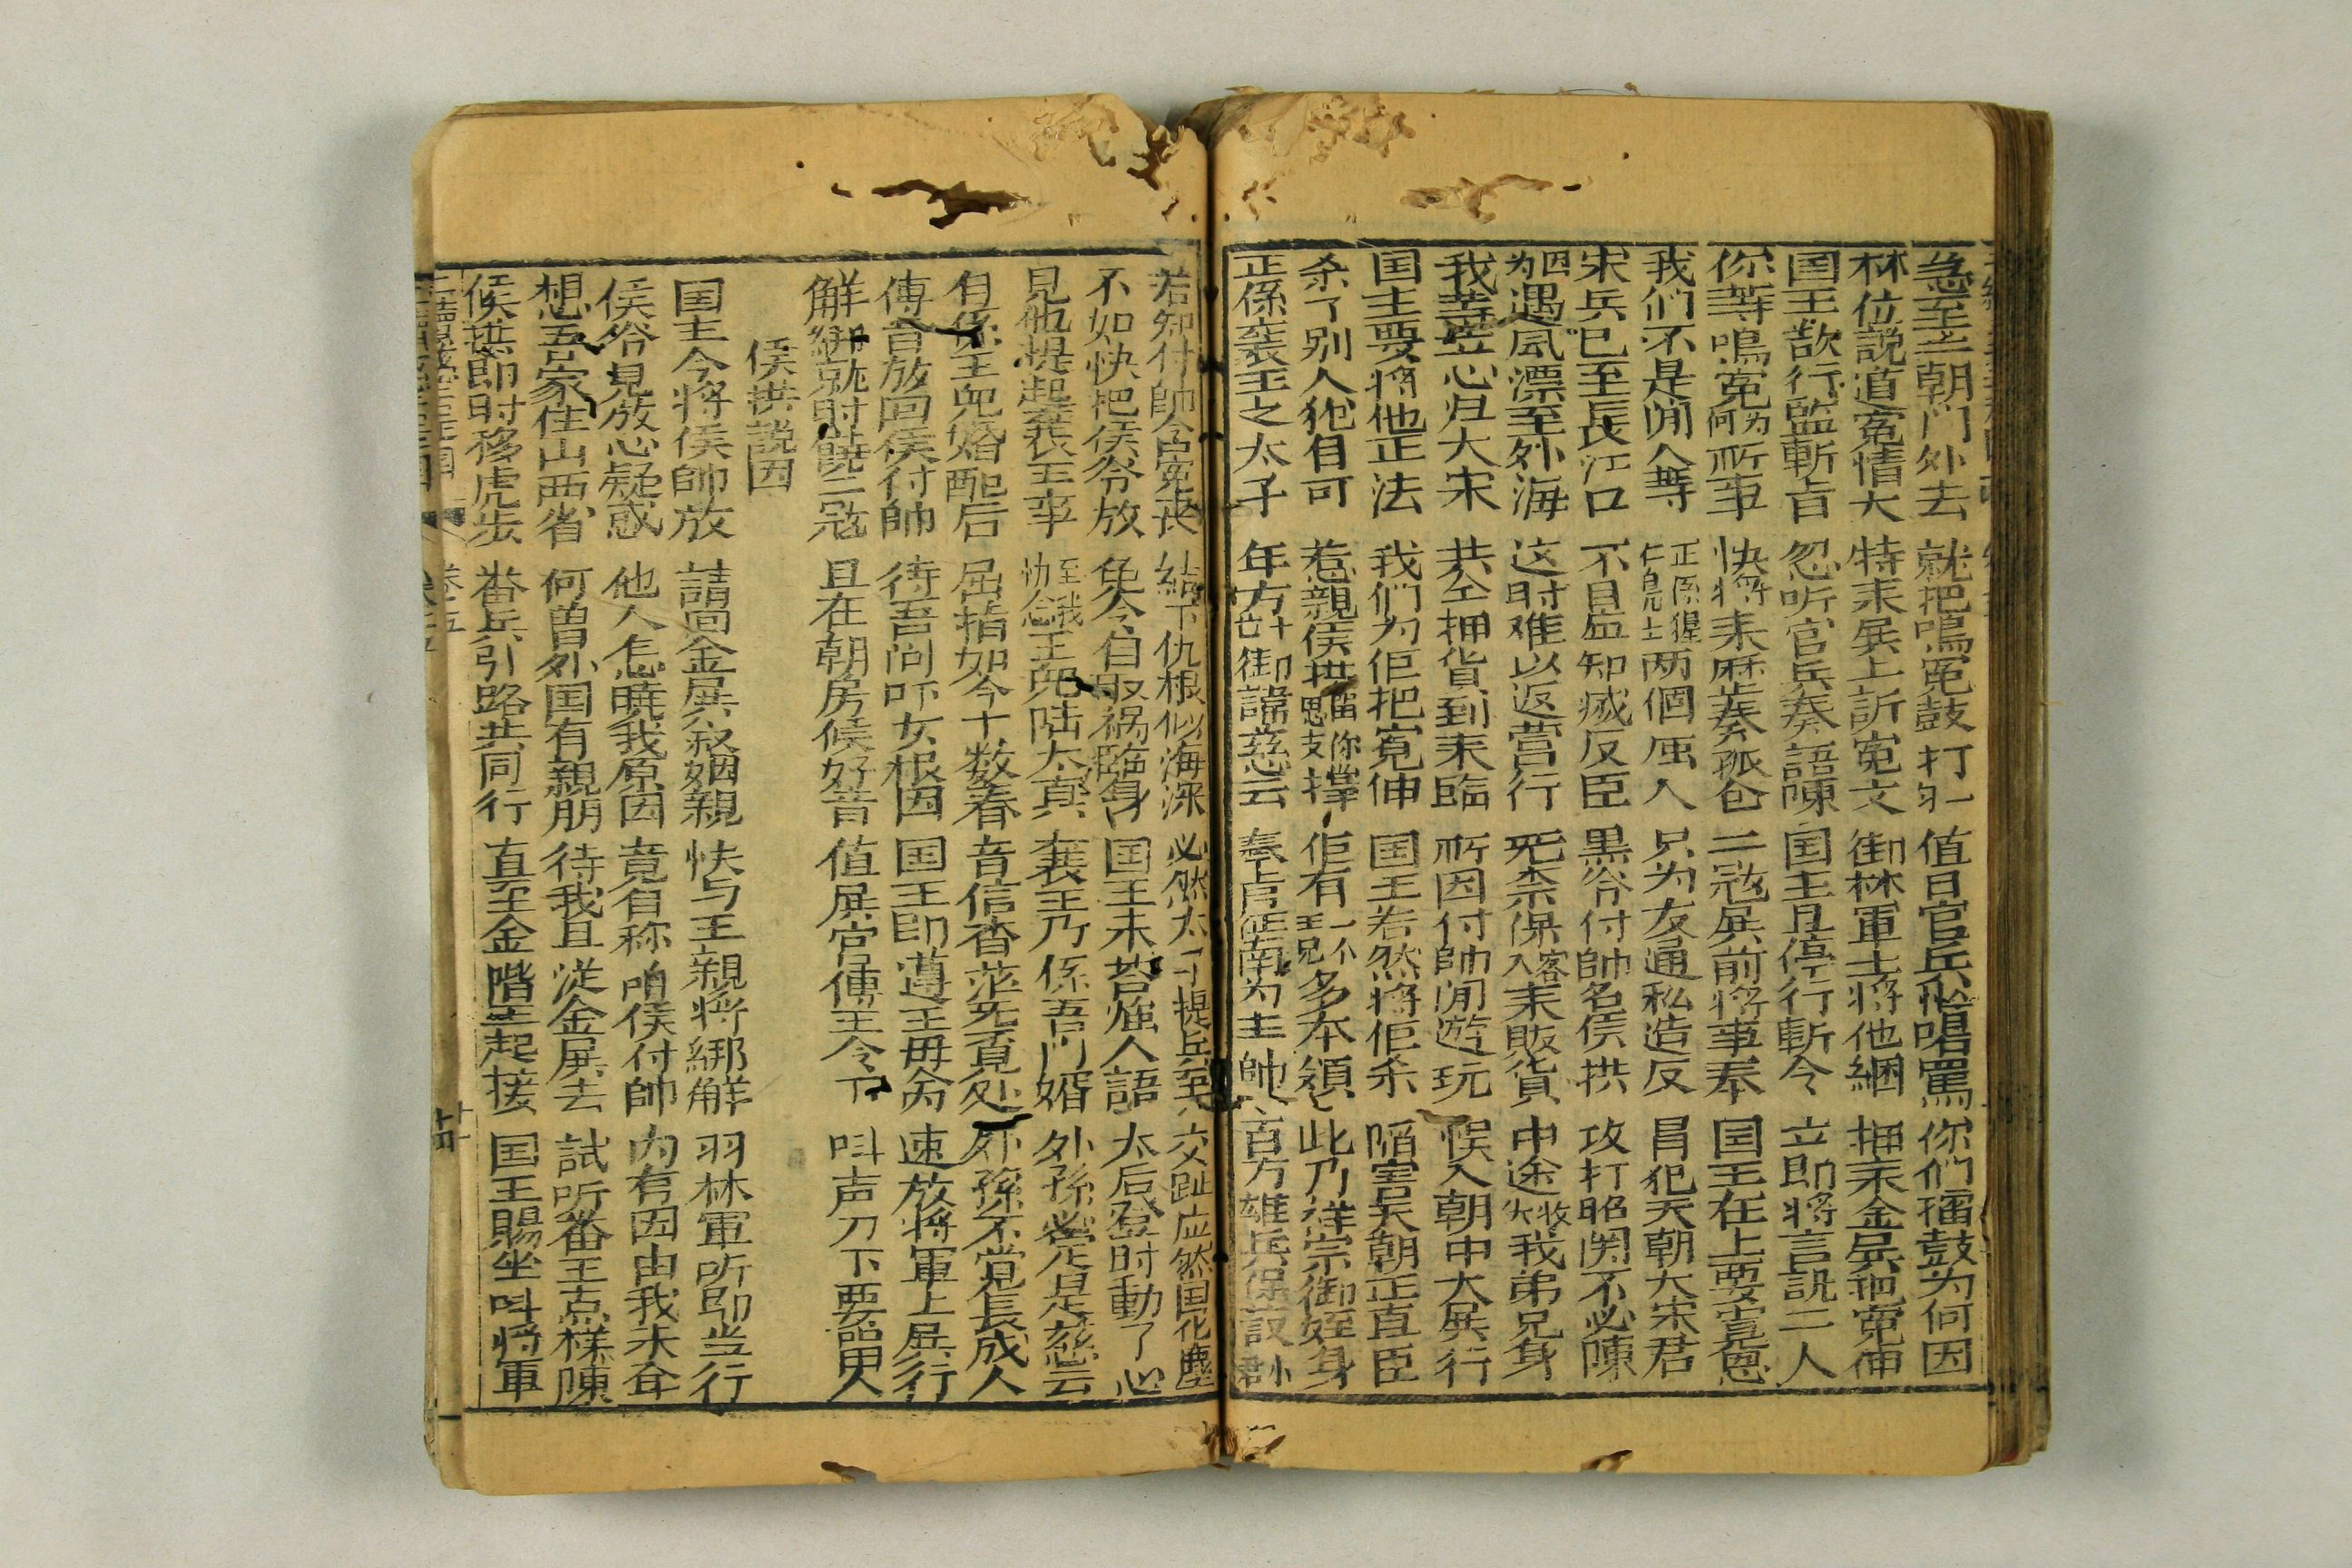 急至王朝门外去 就把鳴冤鼓打 值日官兵恰唱罵 你们擂鼓为何因
林位説道冤情大 特来展上訴冤文 御林軍士将他綑 押来金展把冤伸
国王行監斬旨 忽听官兵奏語陳 国主且停行斬令 立即将言訊二人
你等鳴冤为何所事 快将来歷奏孤 二寇展前将事奉 国王在上要
我们不是閒人等 正係猩士两個屈人 只为友通私造反 冐犯天朝大宋君
宋兵已至長江口 不日知滅反臣 黑爷付帥名侯拱 攻打昭関不必陳
因为遇風漂至外海 这时难以返营行 保客人来販貨 中途失散我弟兄身
我等立心归大宋 共仝押貨到来臨 所因付帥閒遊玩 悮入朝中大展行
国主要将他正法 我们为佢把冤伸 国王若然将佢杀 陷害吴朝正直臣
杀了别人犹自可 惹親侯拱你撑 佢有一不王兄多本領 此乃祥宗御姪身
正係襄王之太子 年方御諱慈云 奉旨征南为主帥 百万雄兵保設
若知付帥含冤丧 結下仇根似海深 必然太子提兵到 交趾应然国化塵
不如快把侯爷放 免令自取禍臨身 国王未荅人語 太后登时動了心
見他提起襄王事 至我念王陸太真 襄王乃係吾门婿 外孫必定是慈云
自係王婚配后 屈指如今十数春 音信杳茫无覓处 外孫不觉長成人
傳旨放回侯付帥 待吾问吓女根因 国王即遵王毋命 速放将軍上展行
觧綁就时饒二寇 且在朝房候好音 值展官傳王令下 呌声刀下要留人
侯拱説因
国主今将侯帥放 請回金展叙姻親 快与王親将綁觧 羽林軍听即当行
侯爷見放心疑惑 他人怎曉我原因 竟自称咱侯付帥 内有因由我未
想吾家住山西省 何曽外国有親朋 待我且從金展去 試听番王点様陳
侯拱即时移虎步 番兵引路共同行 直至金階王起接 国王賜坐呌将軍
卷五 十四